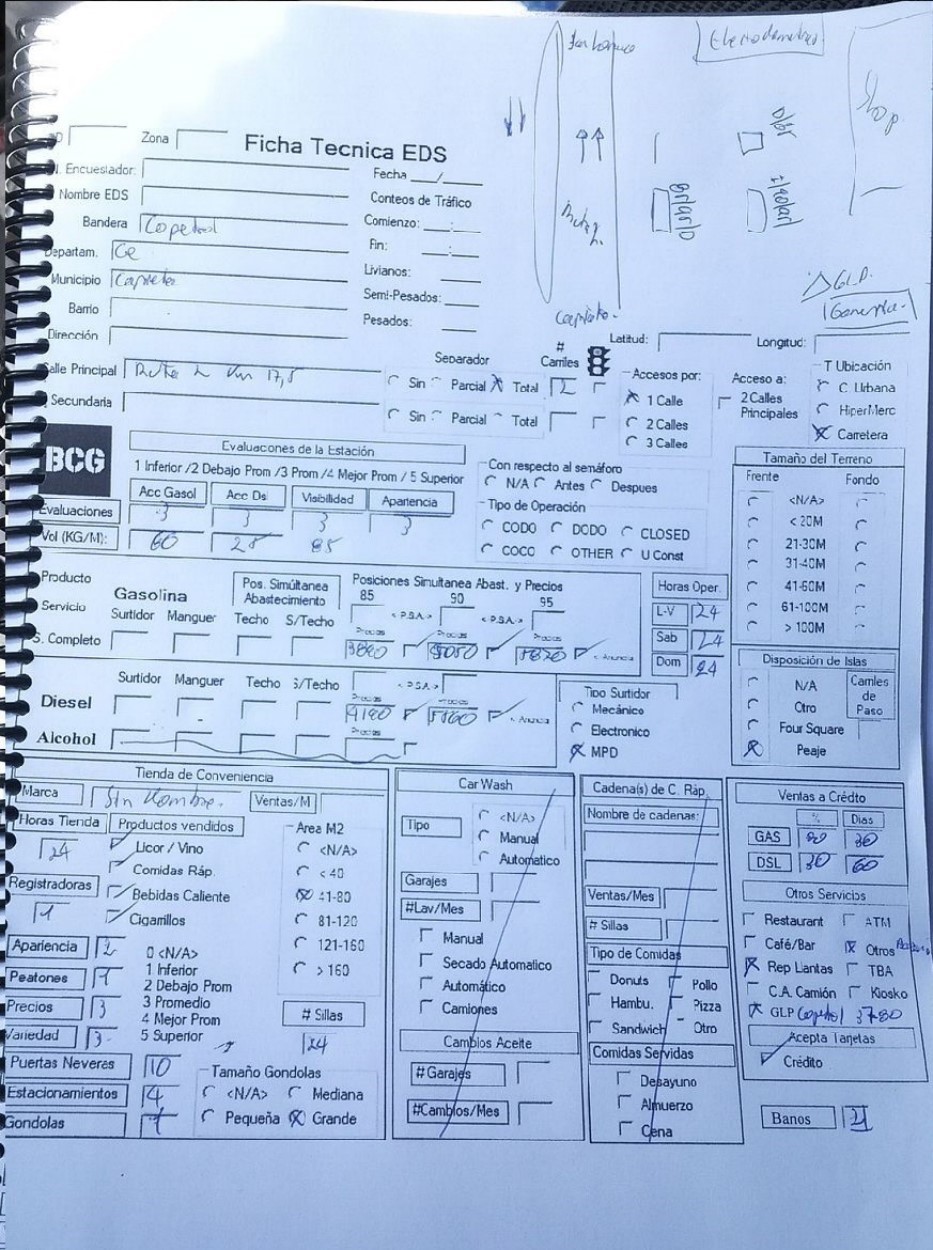 Shop
Zona
Ficha Tecnica EDS
Encuestador:
Fecha __/__
Nombre EDS
Conteos de Tráfico
Bandera Copetrol
Comienzo: __:__
Departam. Ce
Fin: __:__
Municipio Capiata
Livianos:
Barrio
Semi-Pesados:
Dirección
Pesados:
Ruta 2
Capiata
GLP.
Latitud:
Longitud:
Calle Principal Ruta 2 Km 17,5
Separador
Sin Parcial Total
# Carriles
2
Secundaria
Sin Parcial Total
Accesos por:
1 Calle
2 Calles
3 Calles
Acceso a:
2 Calles
Principales
T Ubicación
C. Urbana
HiperMerc
Carretera
BCG
Evaluacones de la Estación
1 Inferior /2 Debajo Prom /3 Prom /4 Mejor Prom / 5 Superior
Acc Gasol Acc Ds Visibilidad Apariencia
Evaluaciones 3 3 3 3
Vol (KG/M): 60 25 85
Con respecto al semáforo
N/A Antes Despues
Tipo de Operación
CODO DODO CLOSED
COCO OTHER U Const
Tamaño del Terreno
Frente Fondo
<N/A>
< 20M
21-30M
31-40M
41-60M
61-100M
> 100M
Producto
Servicio
Gasolina
Pos. Simúltanea
Abastecimiento
Posiciones Simultanea Abast. y Precios
85 90 95
Surtidor Manguer Techo S/Techo
< P.S.A.> < P.S.A.>
S. Completo
Precios Precios Precios
< Anuncia
Horas Oper.
L-V 24
Sab 24
Dom 24
Surtidor Manguer Techo S/Techo
< P.S.A.>
Diesel
Precios Precios
< Anuncia
Alcohol
Precios
Tipo Surtidor
Mecánico
Electronico
MPD
Disposición de Islas
N/A
Otro
Four Square
Peaje
Carriles
de
Paso
Tienda de Conveniencia
Marca Sin Nombre.
Ventas/M
Horas Tienda 24
Productos vendidos
Licor / Vino
Comidas Ráp.
Bebidas Caliente
Cigarrillos
Registradoras 1
Area M2
<N/A>
< 40
41-80
81-120
121-160
> 160
Apariencia 2
Peatones 1
Precios 3
Variedad 3
0 <N/A>
1 Inferior
2 Debajo Prom
3 Promedio
4 Mejor Prom
5 Superior
# Sillas
24
Puertas Neveras 10
Estacionamientos 4
Gondolas 1
Tamaño Gondolas
<N/A> Mediana
Pequeña Grande
Car Wash
Tipo
<N/A>
Manual
Automatico
Garajes
#Lav/Mes
Manual
Secado Automatico
Automático
Camiones
Cambios Aceite
# Garajes
#Cambios/Mes
Cadena(s) de C. Ráp.
Nombre de cadenas:
Ventas/Mes
# Sillas
Tipo de Comidas
Donuts Pollo
Hambu. Pizza
Sandwich Otro
Comidas Servidas
Desayuno
Almuerzo
Cena
Ventas a Crédito
% Dias
GAS 30
DSL 30 60
Otros Servicios
Restaurant ATM
Café/Bar Otros
Rep Llantas TBA
C.A. Camión Kiosko
GLP Copetrol 3780
Acepta Tarjetas
Crédito
Banos